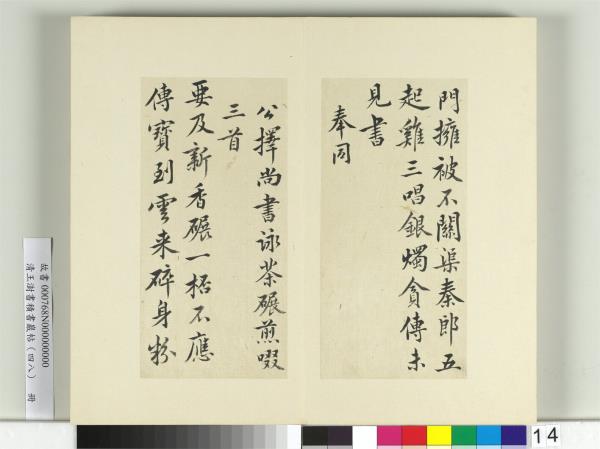 門擁被不關渠秦郎五
起雞三唱銀燭貪傳未
見書
奉同
公擇尚書詠茶碾煎啜
三首
要及新香碾一杯不應
傳寶到雲來碎身粉
故書 000768N00000000
清王澍書積書巖帖(四八) 冊
14